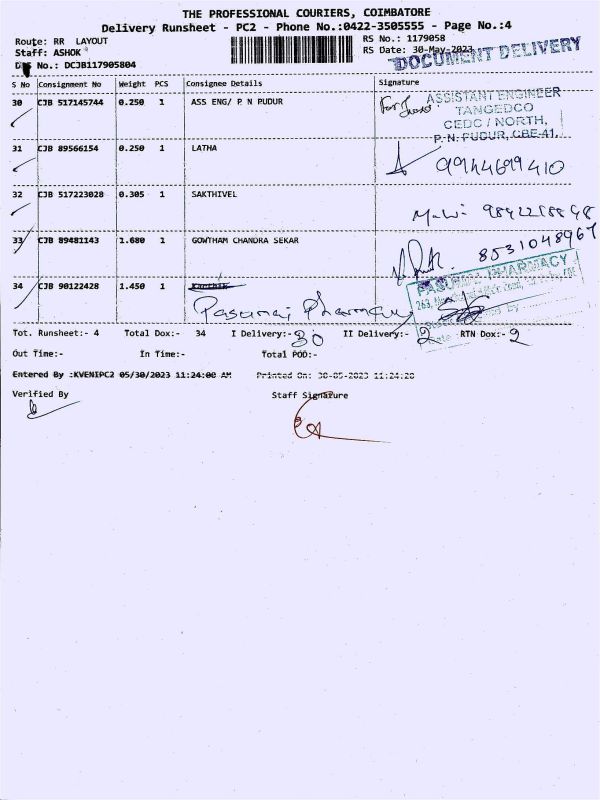 THE PROFESSIONAL COURIERS, COIMBATORE
Delivery Runsheet - PC2 - Phone No.:0422-3505555 - Page No.:4
Route: RR LAYOUT
RS No.: 1179058
Staff: ASHOK
RS Date: 30-May-2023
DRS No.: DCJB117905804
DOCUMENT DELIVERY
S No Consignment No Weight PCS Consignee Details Signature
30 CJB 517145744 0.250 1 ASS ENG/ P N PUDUR
For
ASSISTANT ENGINEER
TANGEDCO
CEDC / NORTH,
P. N. PUDUR, CBE-41.
31 CJB 89566154 0.250 1 LATHA
9944699410
32 CJB 517223028 0.305 1 SAKTHIVEL
33 CJB 89481143 1.680 1 GOWTHAM CHANDRA SEKAR
8531048967
34 CJB 90122428 1.450 1
Pasumai Pharmacy
PASUMAI PHARMACY
Tot. Runsheet:- 4 Total Dox:- 34 I Delivery:- 30 II Delivery:- 2 RTN Dox:- 2
Out Time:- In Time:- Total POD:-
Entered By :KVENIPC2 05/30/2023 11:24:00 AM Printed On: 30-05-2023 11:24:28
Verified By Staff Signature